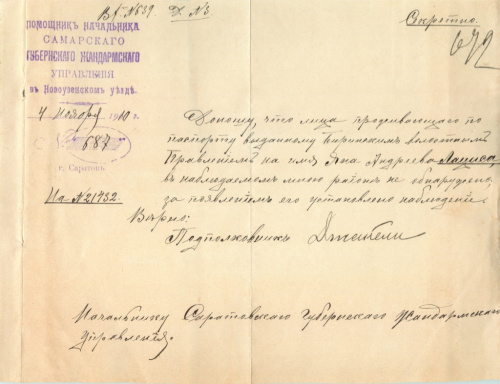 Вх. №639. Д №3.
Секретно.
ПОМОЩНИКЪ НАЧАЛЬНИКА
САМАРСКАГО
ГУБЕРНСКАГО ЖАНДАРМСКАГО
УПРАВЛЕНІЯ
въ Новоузенскомъ уѣздѣ.
4 Ноября 1910 г.
687
г. Саратовъ
На №21432.
Доношу, что лица проживающаго по
паспорту выданному Биринскимъ волостнымъ
Правленіемъ на имя Яна Андреева Лациса,
въ наблюдаемомъ мною районѣ не обнаружено,
за появленіемъ его установлено наблюденіе.
Вѣрно:
Подполковникъ Джакели
Начальнику Саратовскаго Губернскаго Жандармскаго
Управленія.